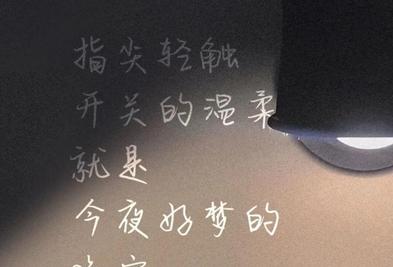 指尖轻触
开关的温柔
就是
今夜好梦的